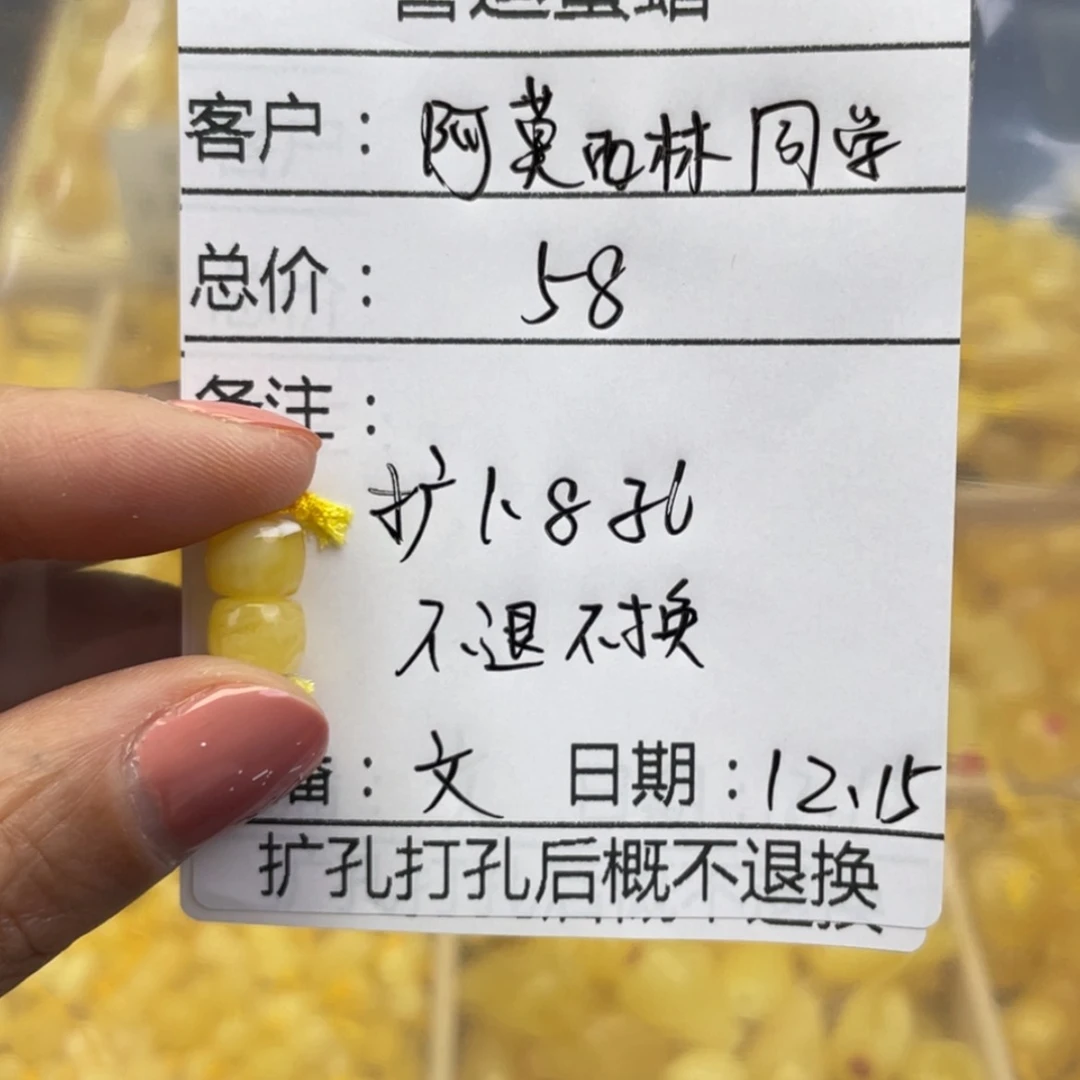 客户：阿莫西林同学
总价：58
备注：
扩1.8孔
不退不换
播：文 日期：12.15
扩孔打孔后概不退换